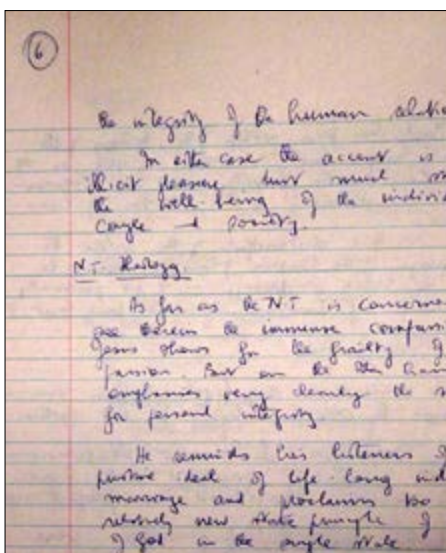 6
the integrity of the human
In either case the accent is
illicit pleasure but much
the well-being of the
couple + society.
N.T. Theology
As far as the N.T. is
see therein the immense
Jesus shows for the frailty
passion. But on the other
emphasises very clearly the
for personal integrity
He reminds his listeners
positive ideal of life long
marriage and proclaims too
relatively new principle
of God in the single state.